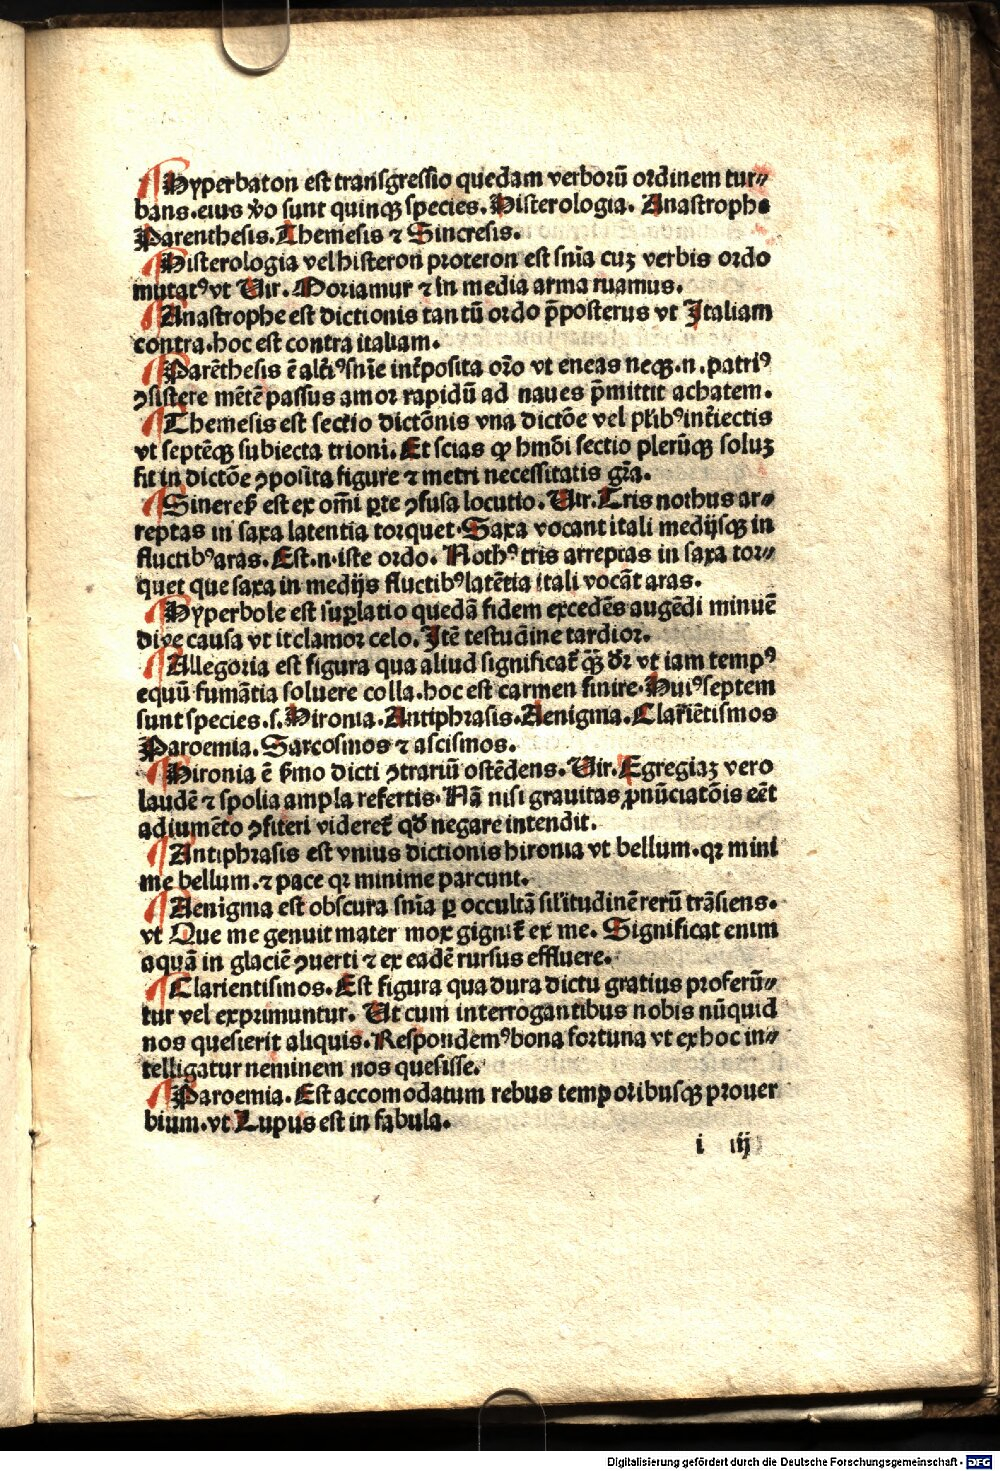 Hyperbaton est transgressio quedam verborū ordinem tur⸗
bans. eius v̄o sunt quinqꝫ species. Histerologia. Anastrophe
Parenthesis. Themesis ⁊ Sincresis.
Histerologia vel histeron proteron est sn̄ia cuꝫ verbis ordo
mutatꝰ vt Uir. Moriamur ⁊ in media arma ruamus.
Anastrophe est dictionis tantū ordo p̄posterus vt Italiam
contra. hoc est contra italiam.
Parēthesis ē alt̓iꝰ sn̄ie int̓posita or̄o vt eneas neqꝫ. n. patriꝰ
ꝯsistere mētē passus amor rapidū ad naues p̄mittit achatem.
Themesis est sectio dictōnis vna dictōe vel plībꝰ int̓iectis
vt septēqꝫ subiecta trioni. Et scias ꝙ hmōi sectio plerūqꝫ soluꝫ
fit in dictōe ꝯposita figure ⁊ metri necessitatis gr̄a.
Sineres̓ est ex om̄i ꝑte ꝯfusa locutio. Uir. Tris nothus ar⸗
reptas in saxa latentia torquet. Saxa vocant itali medijsqꝫ in
fluctibꝰ aras. Est. n. iste ordo. Nothꝰ tris arreptas in saxa tor⸗
quet que saxa in medijs fluctibꝰ latētia itali vocāt aras.
Hyperbole est suꝑlatio quedā fidem excedēs augēdi minuē
diue causa vt it clamor celo. Itē testudine tardior.
Allegoria est figura qua aliud significat̓ qꝫ̄ dr̄ vt iam tempꝰ
equū fumātia soluere colla. hoc est carmen finire. Huiꝰ septem
sunt species. s. Hironia. Antiphrasis. Aenigma. Clariētismos
Paroemia. Sarcosmos ⁊ ascismos.
Hironia ē s̓mo dicti ꝯtrariū ostēdens. Uir. Egregiaꝫ vero
laudē ⁊ spolia ampla refertis. Nā nisi grauitas ꝓnūciatōis eēt
adiumēto ꝯfiteri videret̓ qd̄ negare intendit.
Antiphrasis est vnius dictionis hironia vt bellum. qꝛ mini
me bellum. ⁊ pace qꝛ minime parcunt.
Aenigma est obscura sn̄ia ꝑ occultā sil̓itudinē rerū trāsiens.
vt Que me genuit mater mox gignit̓ ex me. Significat enim
aquā in glaciē ꝯuerti ⁊ ex eadē rursus effluere.
Clarientismos. Est figura qua dura dictu gratius proferū⸗
tur vel exprimuntur. Ut cum interrogantibus nobis nūquid
nos quesierit aliquis. Respondemꝰ bona fortuna vt ex hoc in⸗
telligatur neminem nos quesisse.
Paroemia. Est accomodatum rebus temporibusqꝫ prouer
bium. vt Lupus est in fabula.
i iij
Digitalisierung gefördert durch die Deutsche Forschungsgemeinschaft - DFG